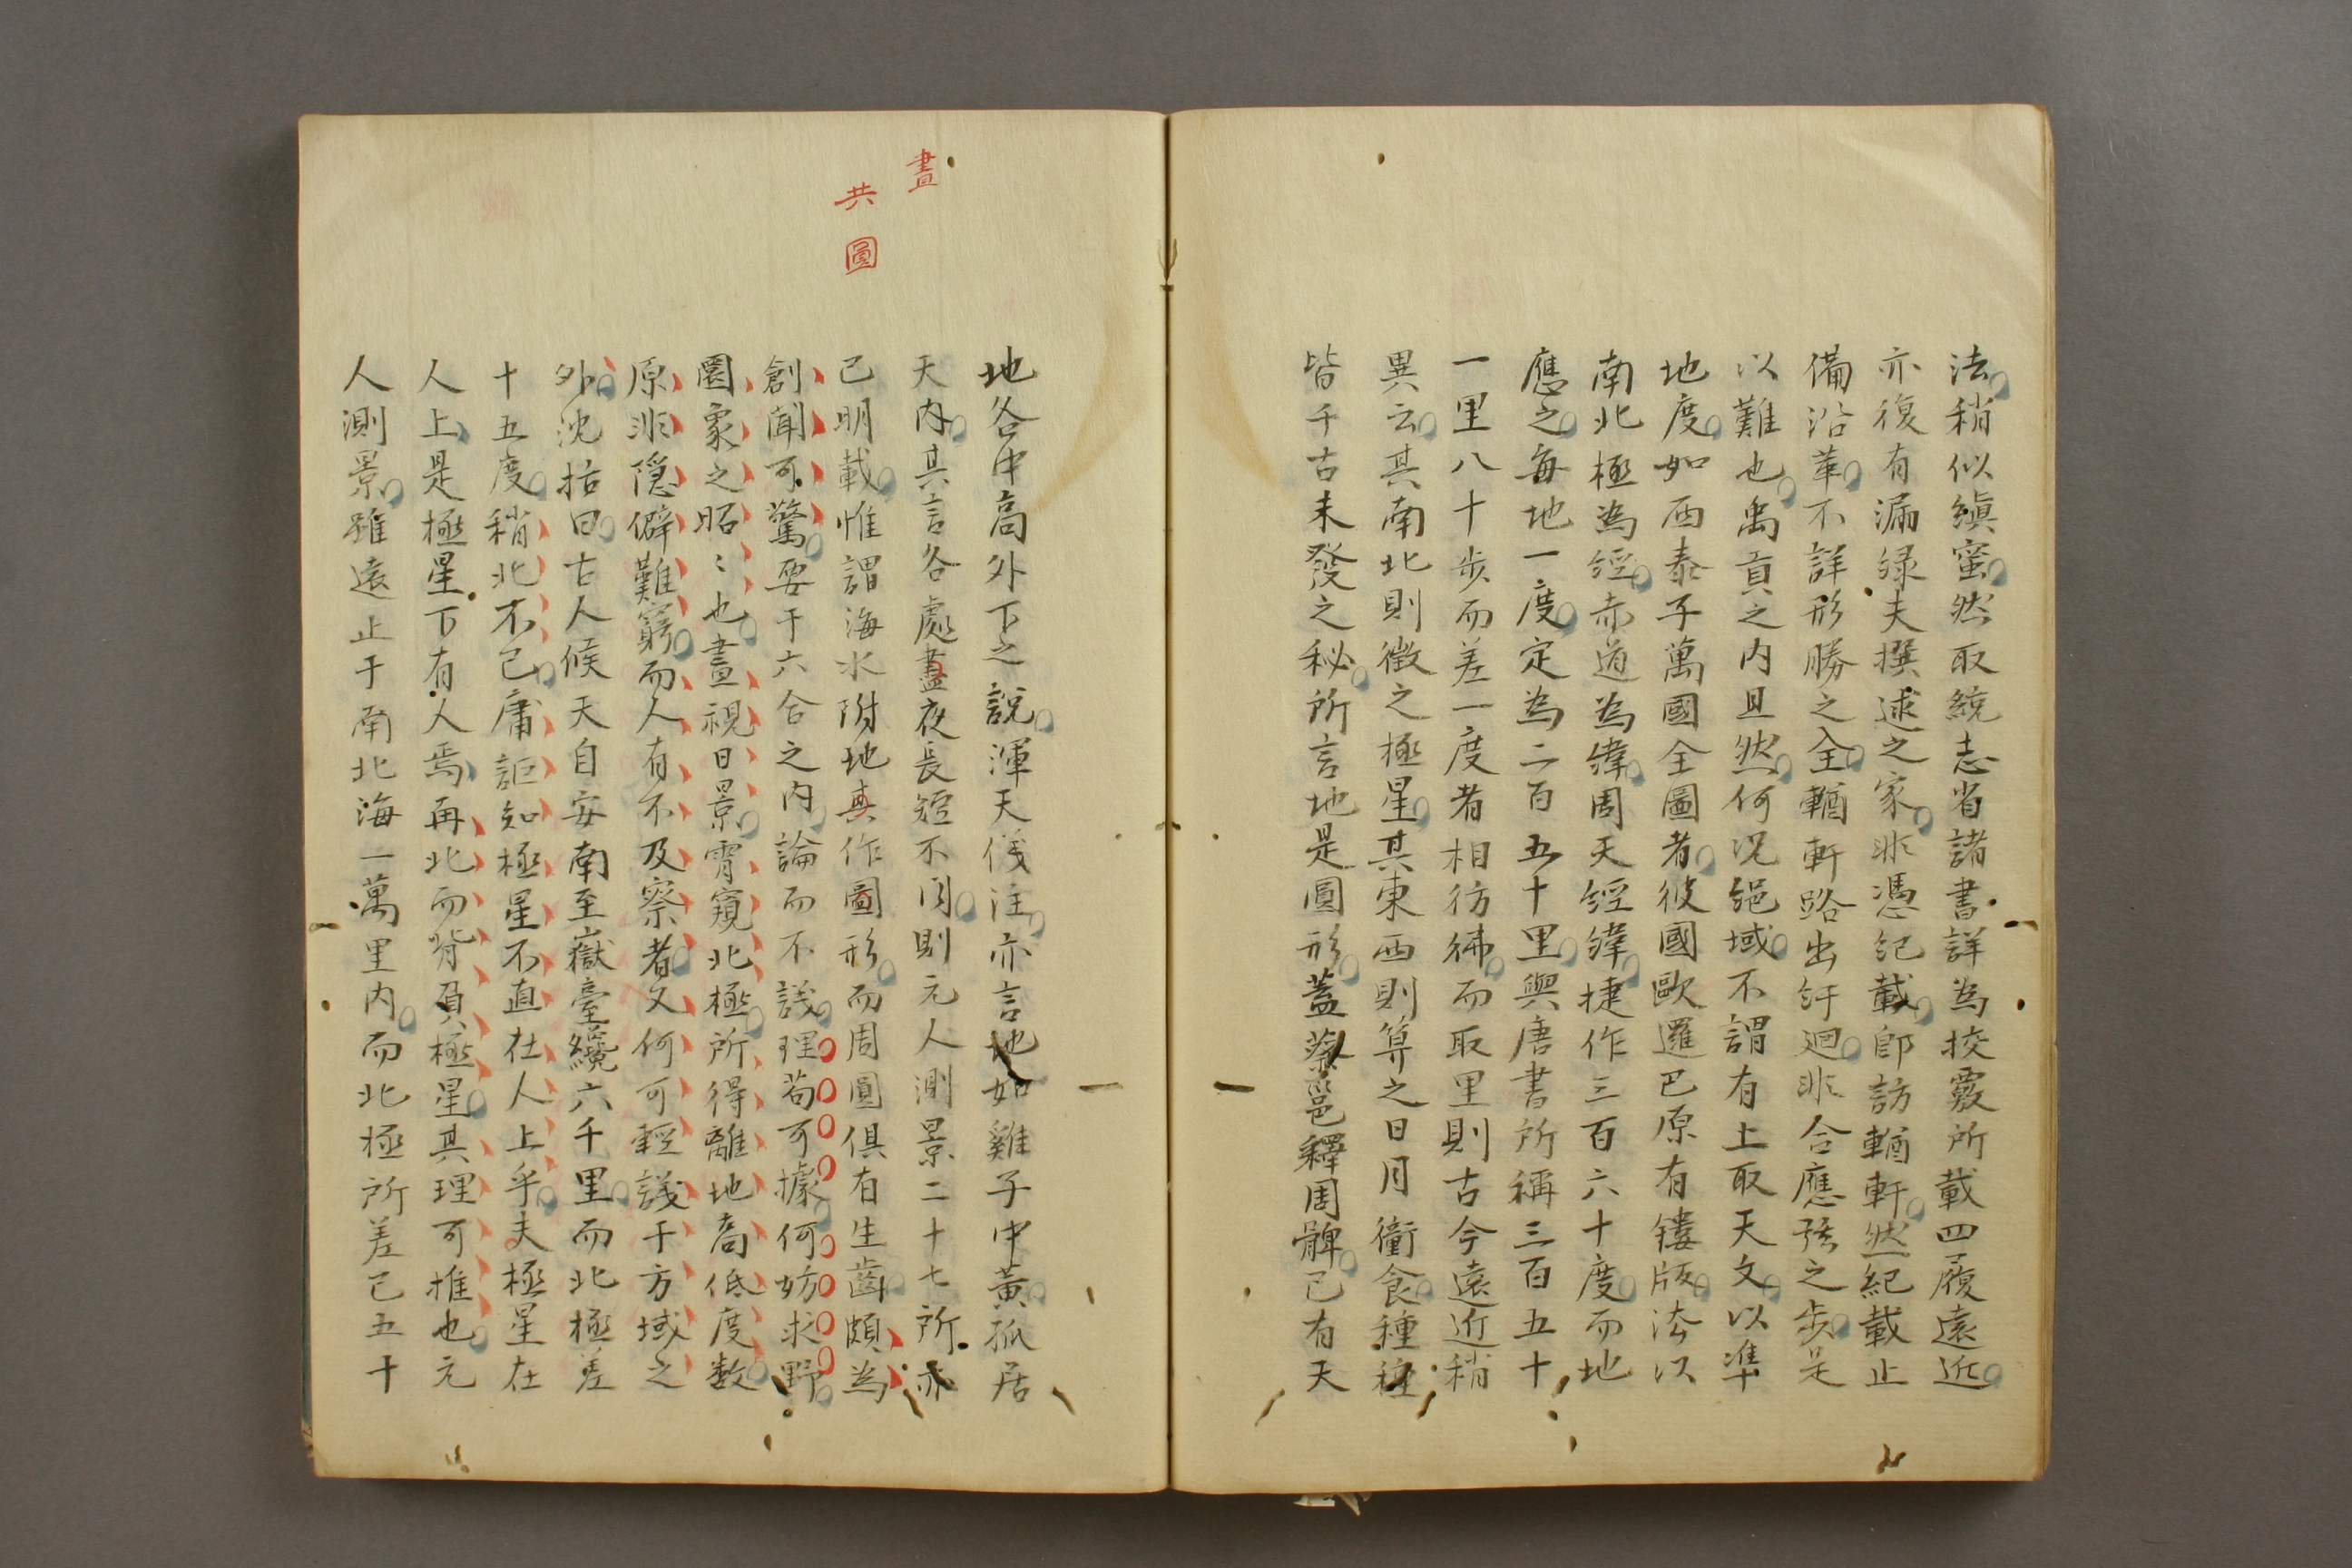 法稍似縝蜜然取統志省諸書詳為挍覈所載四履遠近
亦復有漏緑夫撰述之家非憑紀載卽訪輶軒然紀載止
備沿革不詳形勝之全輶軒路出紆迴非合應弦之步是
以難也禹貢之内且然何况絕域不謂有上取天文以準
地度如西泰子萬國全圖者彼國歐邏巴原有镂版法以
南北極為經赤道為緯周天經緯捷作三百六十度而地
應之每地一度定為二百五十里與唐書所稱三百五十
一里八十步而差一度者相彷彿而取里則古今遠近稍
異云其南北則徵之極星其東西則算之日月衝食種種
皆千古未發之秘所言地是圓形蓋蔡邕釋周髀已有天
地各中高外下之說渾天儀注亦言地如雞子中黃孤居
天内其言各處晝夜長短不同則元人測景二十七所亦
已明載惟謂海水附地共作圖形而周圓俱有生齒頗為
創聞可驚要于六合之内論而不議理苟可據何妨求野
圜象之昭〻也晝視日景霄窺北極所得離地高低度数
原非隱僻難窮而人有不及察者又何可輕議于方域之
外沈括曰古人候天自安南至嶽臺纔六千里而北極差
十五度稍北不已庸詎知極星不直在人上乎夫極星在
人上是極星下有人焉再北而背負極星其理可推也元
人測景雖遠止于南北海一萬里内而北極所差已五十
晝
共
圓